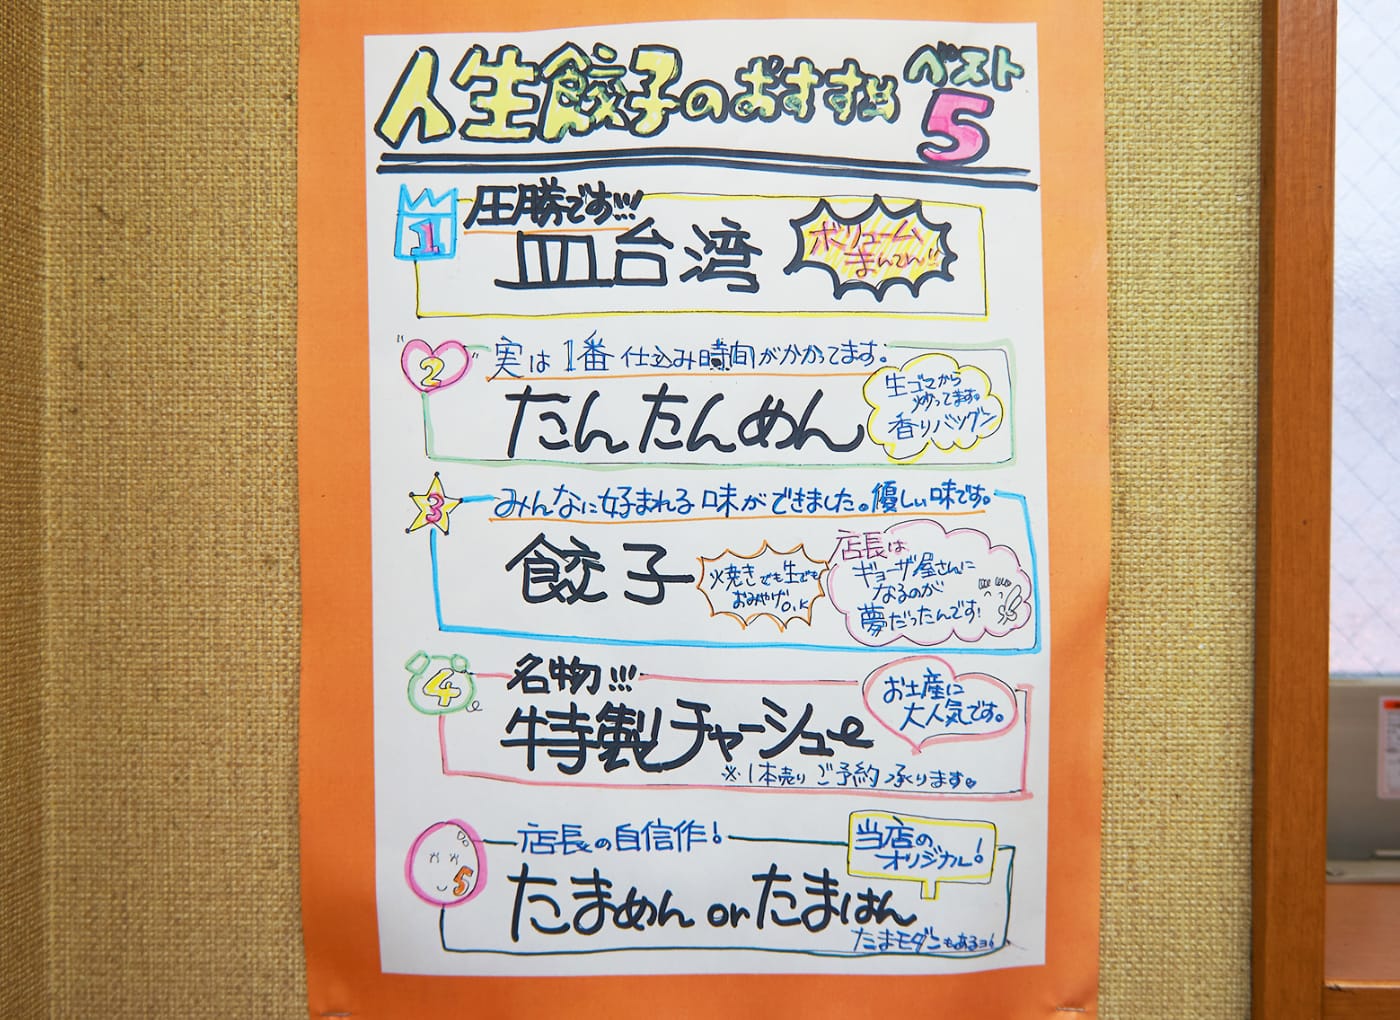 人生餃子のおすすめ ベスト5
1
圧勝です!!!
皿台湾
ボリューム
まんてん!!
2
実は1番仕込み時間がかかってます。
たんたんめん
生ゴマから
炒ってます。
香りバツグン
3
みんなに好まれる味ができました。優しい味です。
餃子
焼きでも生でも
おみやげO.K
店長は
ギョーザ屋さんに
なるのが
夢だったんです!
4
名物!!!
特製チャーシュー
※1本売りご予約承ります。
お土産に
大人気です。
5
店長の自信作!
たまめん or たまはん
当店の
オリジナル!
たまモダンもあるヨ!